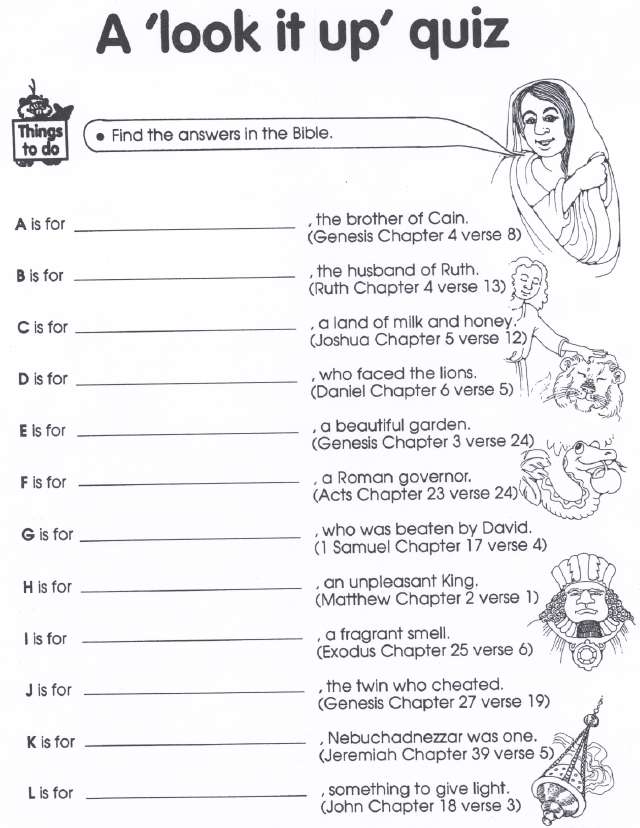 A 'look it up' quiz
Things
to do
• Find the answers in the Bible.
A is for ____________ , the brother of Cain.
(Genesis Chapter 4 verse 8)
B is for ____________ , the husband of Ruth.
(Ruth Chapter 4 verse 13)
C is for ____________ , a land of milk and honey.
(Joshua Chapter 5 verse 12)
D is for ____________ , who faced the lions.
(Daniel Chapter 6 verse 5)
E is for ____________ , a beautiful garden.
(Genesis Chapter 3 verse 24)
F is for ____________ , a Roman governor.
(Acts Chapter 23 verse 24)
G is for ____________ , who was beaten by David.
(1 Samuel Chapter 17 verse 4)
H is for ____________ , an unpleasant King.
(Matthew Chapter 2 verse 1)
I is for ____________ , a fragrant smell.
(Exodus Chapter 25 verse 6)
J is for ____________ , the twin who cheated.
(Genesis Chapter 27 verse 19)
K is for ____________ , Nebuchadnezzar was one.
(Jeremiah Chapter 39 verse 5)
L is for ____________ , something to give light.
(John Chapter 18 verse 3)